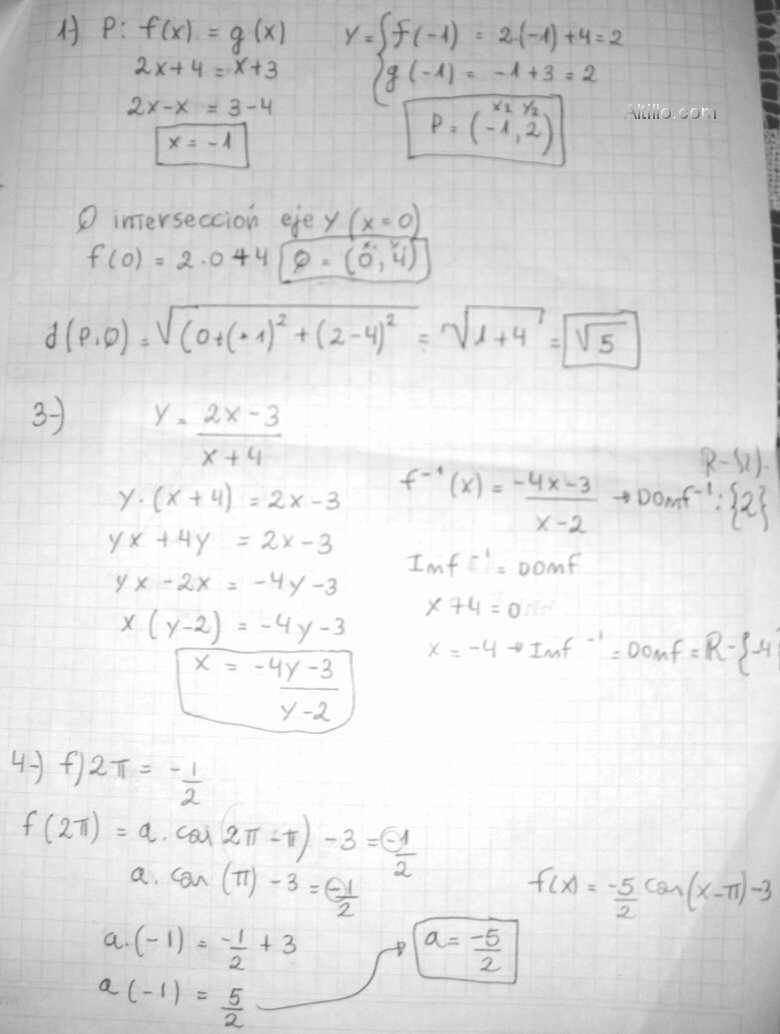 1) P: f(x) = g(x)
2x+4 = x+3
2x-x = 3-4
x = -1
Y = { f(-1) = 2·(-1)+4 = 2
g(-1) = -1+3 = 2
P = (-1, 2)
Altillo.com
Q intersección eje y (x=0)
f(0) = 2·0+4 Q = (0, 4)
d(P,Q) = √((0+(-1)² + (2-4)² = √1+4 = √5
3-) y = 2x-3 / x+4
y·(x+4) = 2x-3
yx+4y = 2x-3
yx-2x = -4y-3
x(y-2) = -4y-3
x = -4y-3 / y-2
f⁻¹(x) = -4x-3 / x-2 → Domf⁻¹: {2}
Imf⁻¹ = Domf
x+4 = 0
x = -4 → Imf⁻¹ = Domf = R-{-4
4-) f)2π = -1/2
f(2π) = a. cos(2π-π) -3 = -1/2
a. cos(π) -3 = -1/2
a·(-1) = -1/2 + 3
a(-1) = 5/2 → a = -5/2
f(x) = -5/2 cos(x-π)-3